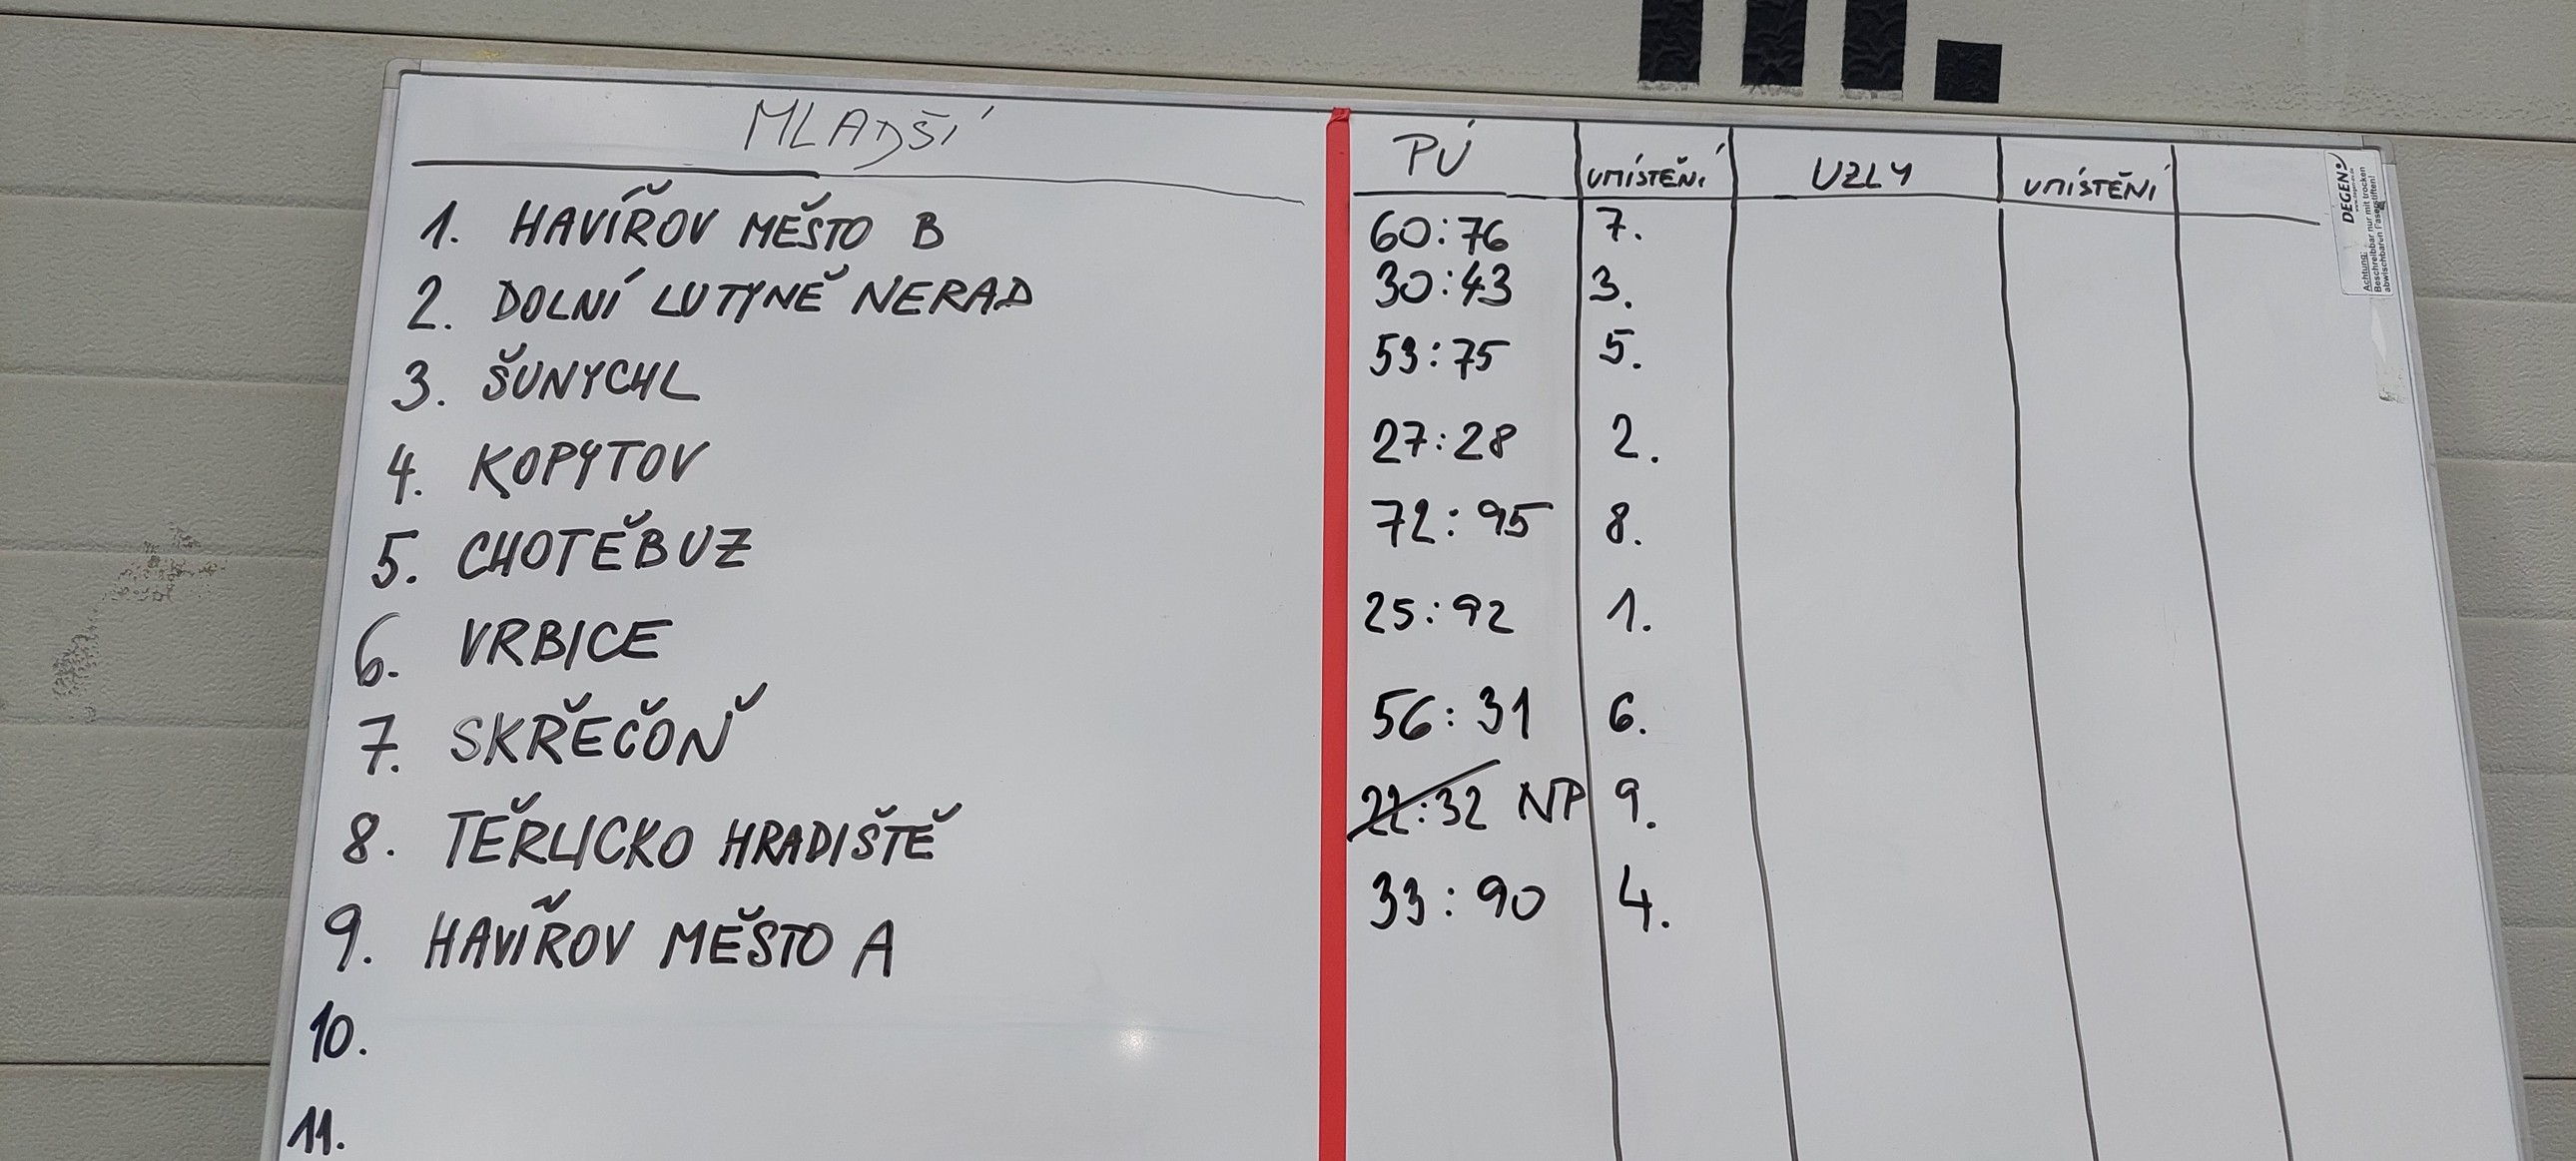 MLADŠÍ PÚ UMÍSTĚNÍ UZLY UMÍSTĚNÍ
1. HAVÍŘOV MĚSTO B 60:76 7.
2. DOLNÍ LUTYNĚ NERAD 30:43 3.
3. ŠUNYCHL 53:75 5.
4. KOPYTOV 27:28 2.
5. CHOTĚBUZ 72:95 8.
6. VRBICE 25:92 1.
7. SKŘEČOŇ 56:31 6.
8. TĚŘLICKO HRADIŠTĚ 22:32 NP 9.
9. HAVÍŘOV MĚSTO A 33:90 4.
10.
11.
DEGEN
Achtung:
Beschreibbar nur mit trocken
abwischbaren Faserstiften!